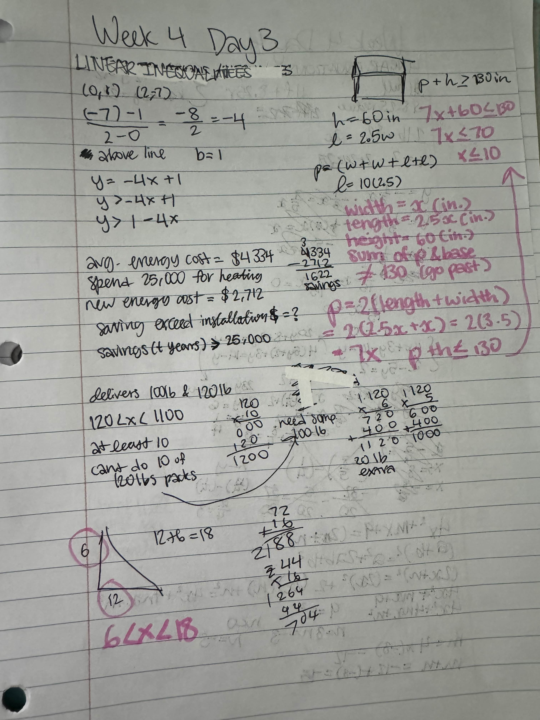 Week 4 Day 3
LINEAR
(0,1) (2,-7)
(-7)-1 / 2-0 = -8/2 = -4
above line b=1
y = -4x+1
y > -4x+1
y > 1-4x
p+h ≥ 130 in
h = 60 in
l = 2.5w
p = (w+w+l+l)
l = 10(2.5)
7x+60≤130
7x≤70
x≤10
width = x (in.)
length = 2.5x (in.)
height = 60 (in.)
sum of p & base
≠ 130 (go past)
p = 2(length+width)
= 2(2.5x+x) = 2(3.5)
= 7x p+h≤130
avg. energy cost = $4334
spend 25,000 for heating
new energy cost = $2,712
saving exceed installation $ = ?
savings (t years) > 25,000
3
4334
-2712
1622
savings
delivers 100lb & 120lb
120<x<1100
at least 10
can't do 10 of
120lbs packs
120
x 10
000
120
1200
need some
100 lb
1
120
x 6
720
+ 400
1120
20 lb
extra
1
120
x 5
600
+400
1000
6
12
12+6=18
6<x<18
72
+16
2188
44
x 16
1264
44
704